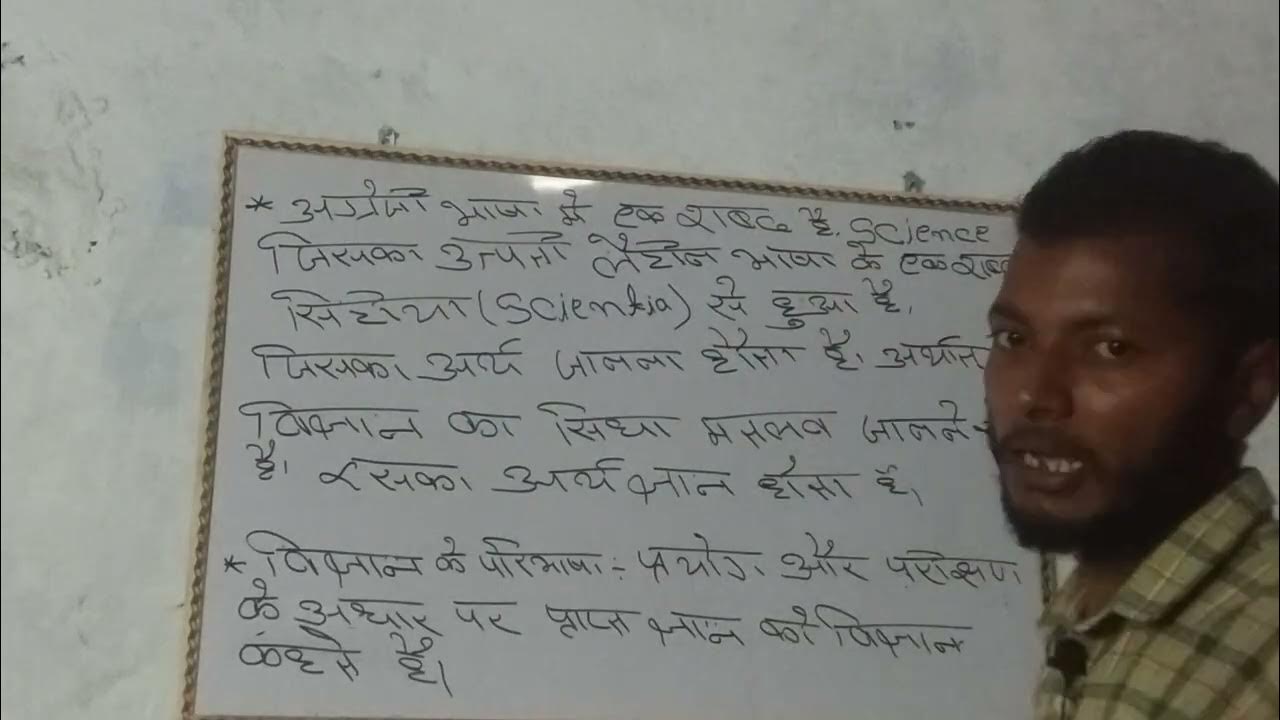 * अग्रेजी भाषा मे एक शब्द है. Science
जिसका उत्पत्ती लैटीन भाषा के एक शब्द
सिटीया (Scientia) से हुआ है.
जिसका अर्थ जानना होता है। अर्थात
विज्ञान का सिधा मतलब जानने
है। इसका अर्थ ज्ञान होता है।
* विज्ञान के परिभाषा:- प्रयोग और परीक्षण
के अधार पर प्राप्त ज्ञान को विज्ञान
कहते है।